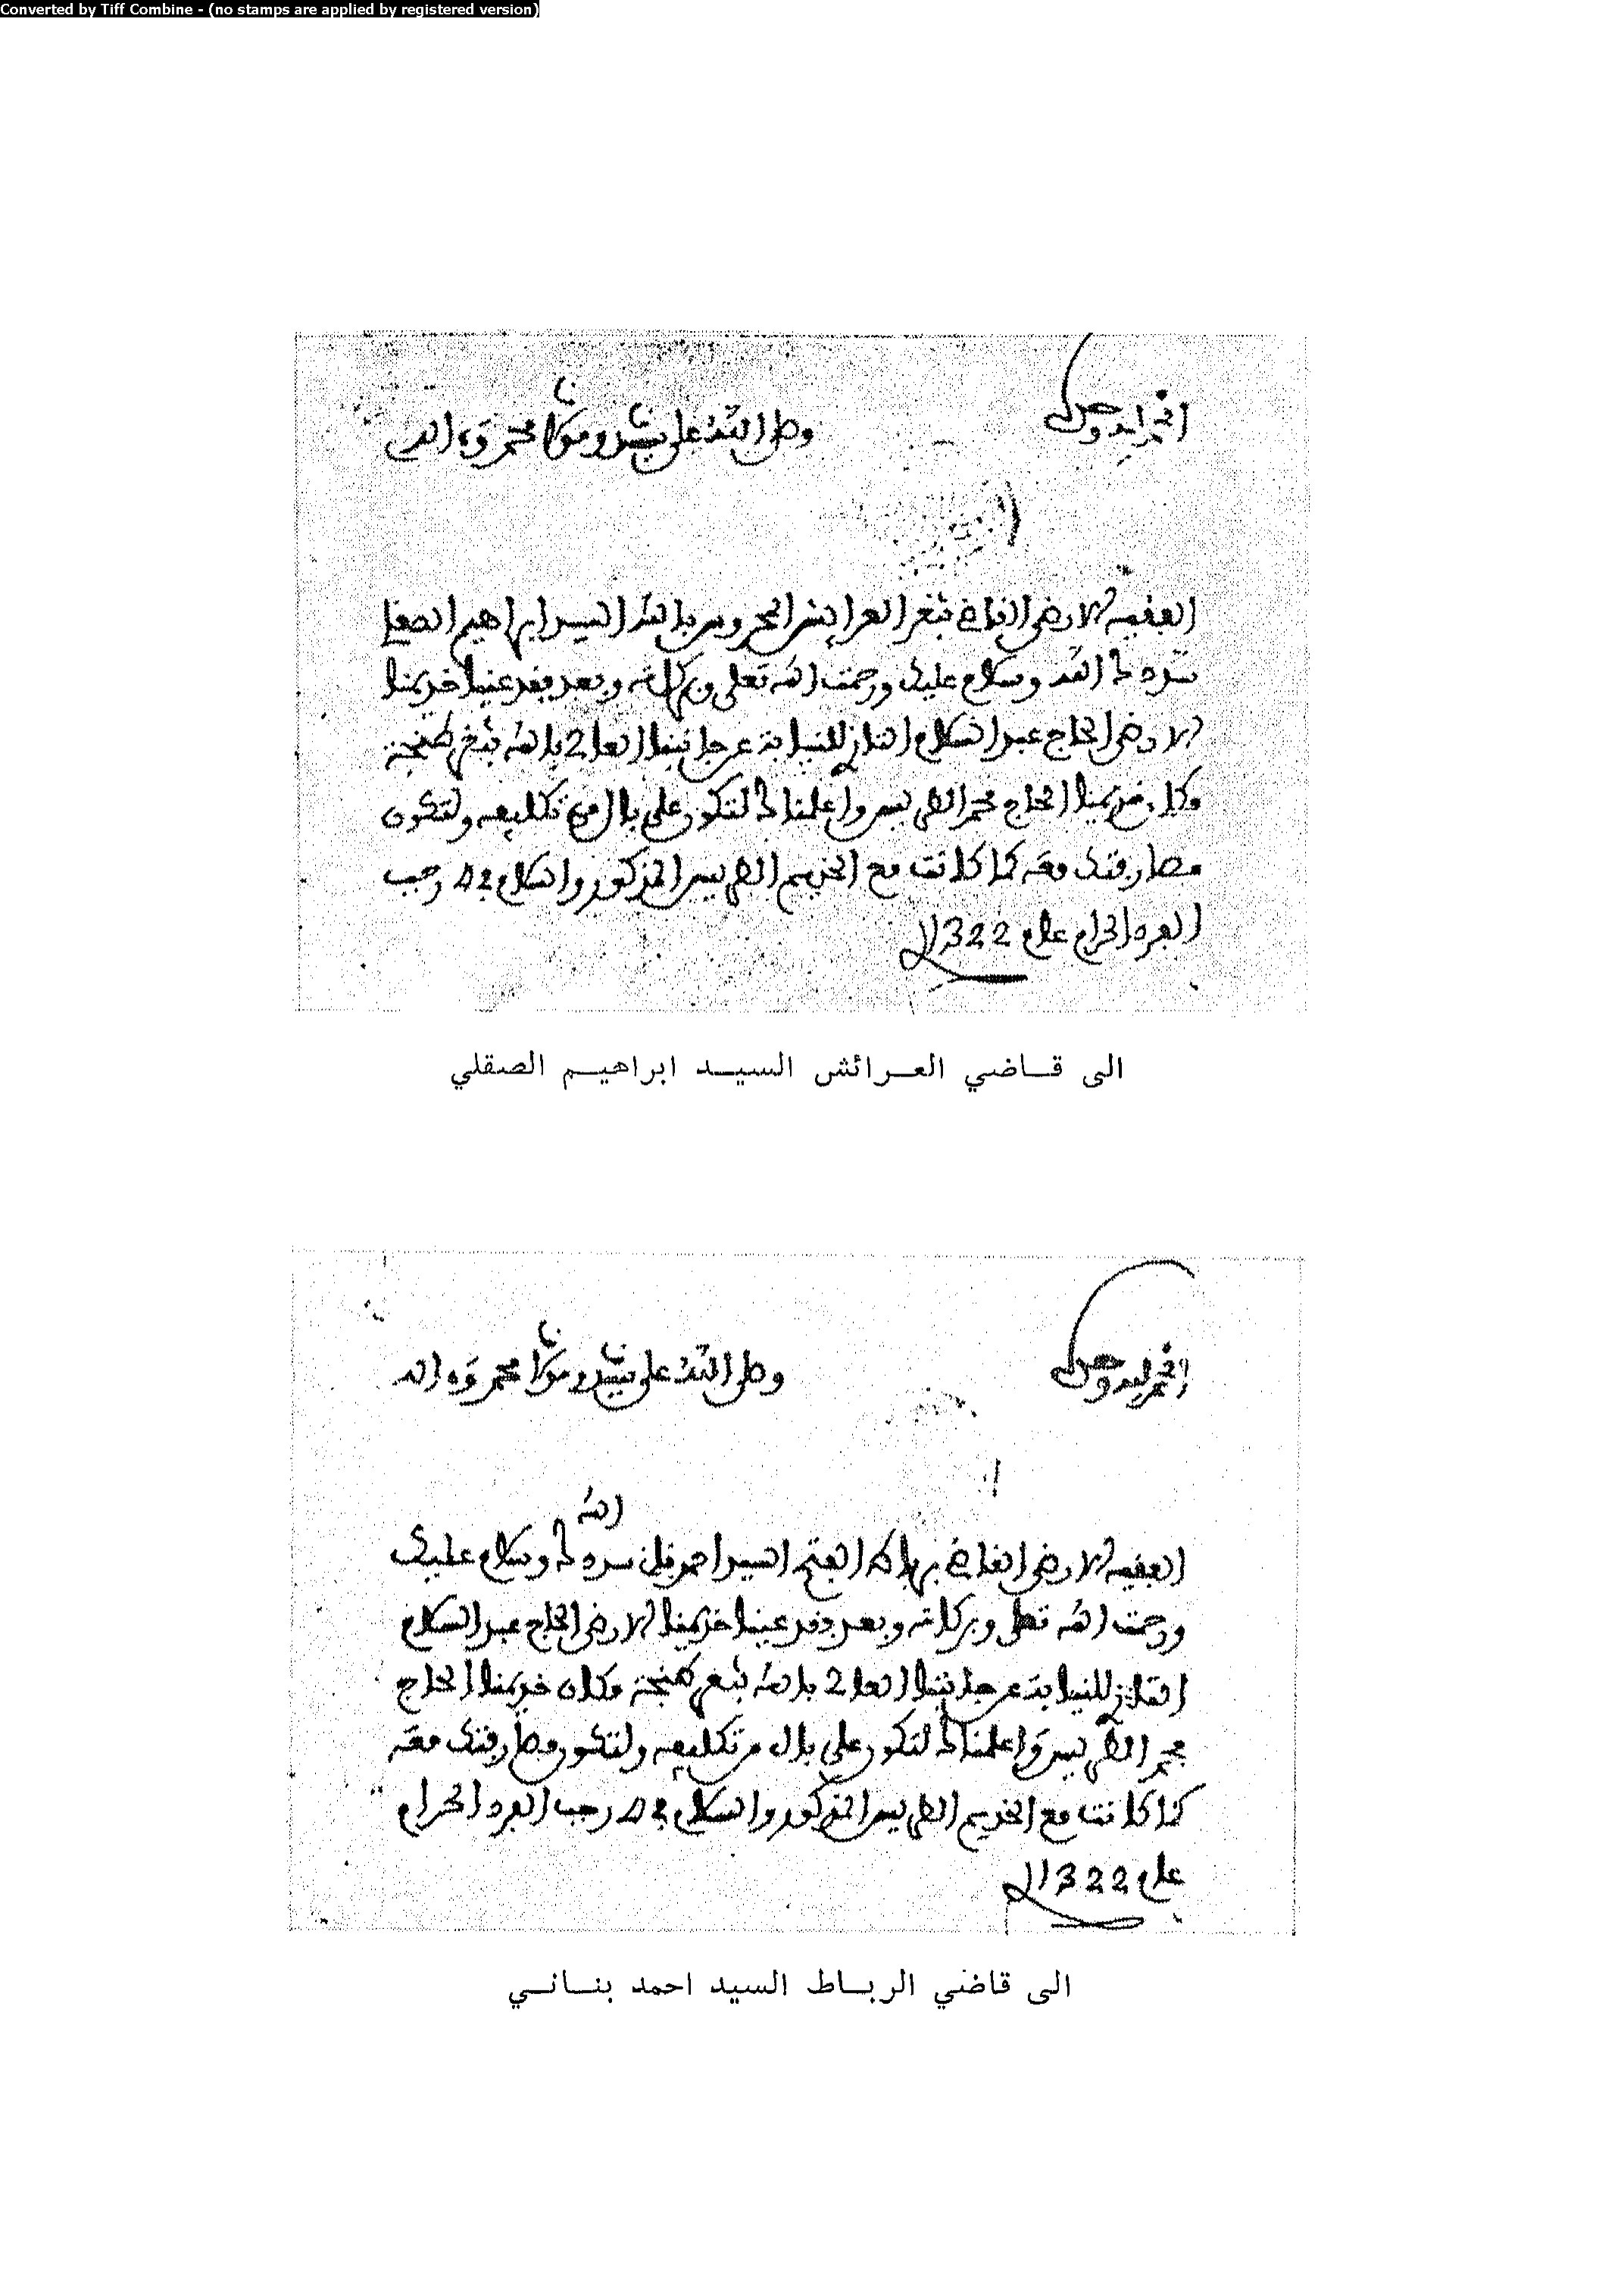 Converted by Tiff Combine - (no stamps are applied by registered version)
الحمد لله وحده
وصلى الله على سيدنا ومولانا محمد وءاله
الفقيه الارضى القاضي بثغر العرائش المحروس بالله السيد ابراهيم الصقلي
سددك الله وسلام عليك ورحمت الله تعلى وبركاته وبعد فقد عيننا خديمنا
الارضى الحاج عبد السلام التازي للنيابة عن جانبنا العالي بالله بثغر طنجة
مكان خديمنا الحاج محمد الطريس وأعلمناك لتكون على بال من تكليفه ولتكون
مصارفتك معه كما كانت مع الخديم الطريس المذكور والسلام في رجب
الفرد الحرام عام 1322
الى قاضي العرائش السيد ابراهيم الصقلي
الحمد لله وحده
وصلى الله على سيدنا ومولانا محمد وءاله
الله
الفقيه الارضى القاضي برباط الفتح السيد احمد سددك وسلام عليك
ورحمت الله تعلى وبركاته وبعد فقد عيننا خديمنا الارضى الحاج عبد السلام
التازي للنيابة عن جانبنا العالي بالله بثغر طنجة مكان خديمنا الحاج
محمد الطريس وأعلمناك لتكون على بال من تكليفه ولتكون مصارفتك معه
كما كانت مع الخديم الطريس المذكور والسلام في رجب الفرد الحرام
عام 1322
الى قاضي الرباط السيد احمد بناني